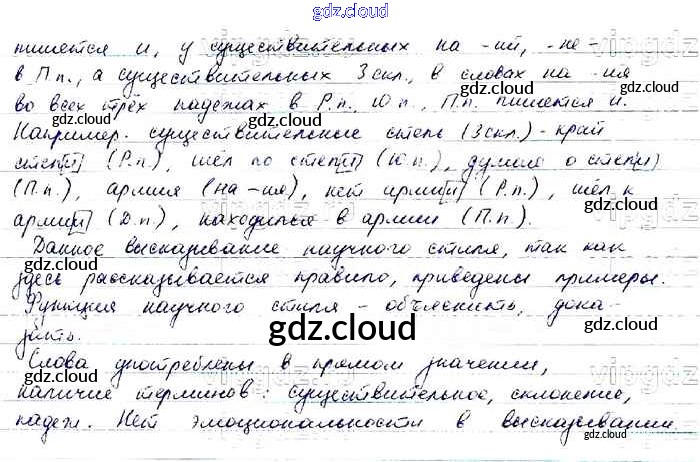 gdz.cloud
пишется и, у существительных на -ий, -ие -
в П.п., а существительных 3 скл., в словах на -ия
во всех трёх падежах в Р.п., Ю.п., П.п. пишется и.
Например: существительные степь (3 скл.) - край
степ[и] (Р.п.), шёл по степ[и] (Ю.п.), думал о степ[и]
(П.п.), армия (на -ия), нет арми[и] (Р.п.), шёл к
арми[и] (Д.п.), находился в армии (П.п.).
Данное высказывание научного стиля, так как
здесь рассказывается правило, приведены примеры.
Функция научного стиля - объяснить, дока-
зать.
gdz.cloud
Слова употреблены в прямом значении,
наличие терминов: существительное, склонение,
падеж. Нет эмоциональности в высказывании.